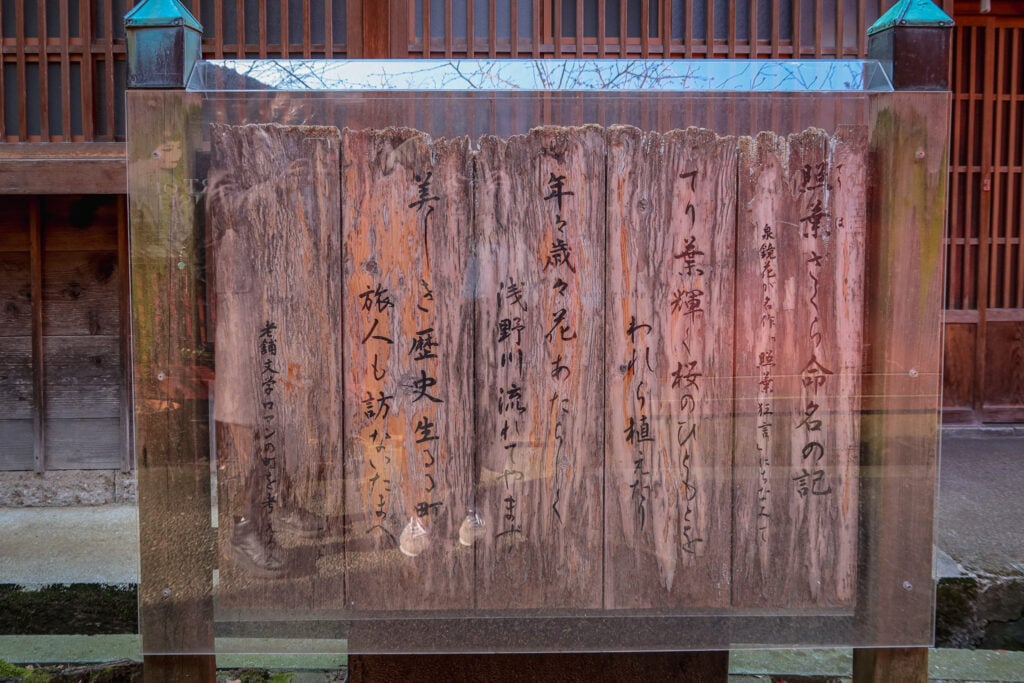 照葉ざくら命名の記
てりは
泉鏡花が名作、照葉狂言」にちなみて
てり葉輝く桜のひともとを
われら植えたり
年々歳々花あたらしく
浅野川流れてやまず
美しき歴史生くる町
旅人も訪ないたまへ
老舗文学ロマンの町を考える会